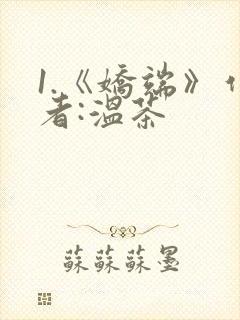 1.《嬌端》
者:溫茶
蘇蘇蘇墨